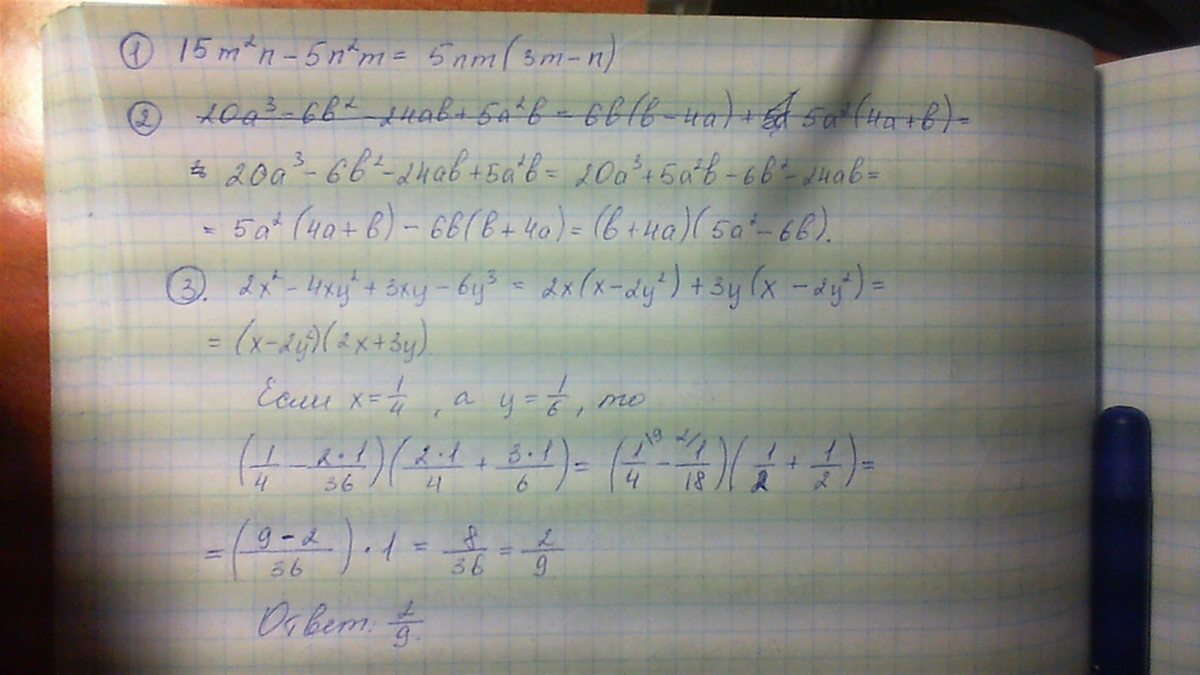 ① 15m²n - 5n²m = 5nm(3m - n)
② 20a³ - 6b² - 24ab + 5a²b = 6b(b - 4a) + 5a²(4a + b) =
= 20a³ - 6b² - 24ab + 5a²b = 20a³ + 5a²b - 6b² - 24ab =
= 5a²(4a + b) - 6b(b + 4a) = (b + 4a)(5a² - 6b).
③. 2x² - 4xy² + 3xy - 6y³ = 2x(x - 2y²) + 3y(x - 2y²) =
= (x - 2y²)(2x + 3y).
Если x = 1/4, а y = 1/6, то
(1/4 - 2·1/36)(2·1/4 + 3·1/6) = (1\9/4 - 2/1/18)(1/2 + 1/2) =
= (9 - 2/36) · 1 = 8/36 = 2/9
Ответ: 2/9.